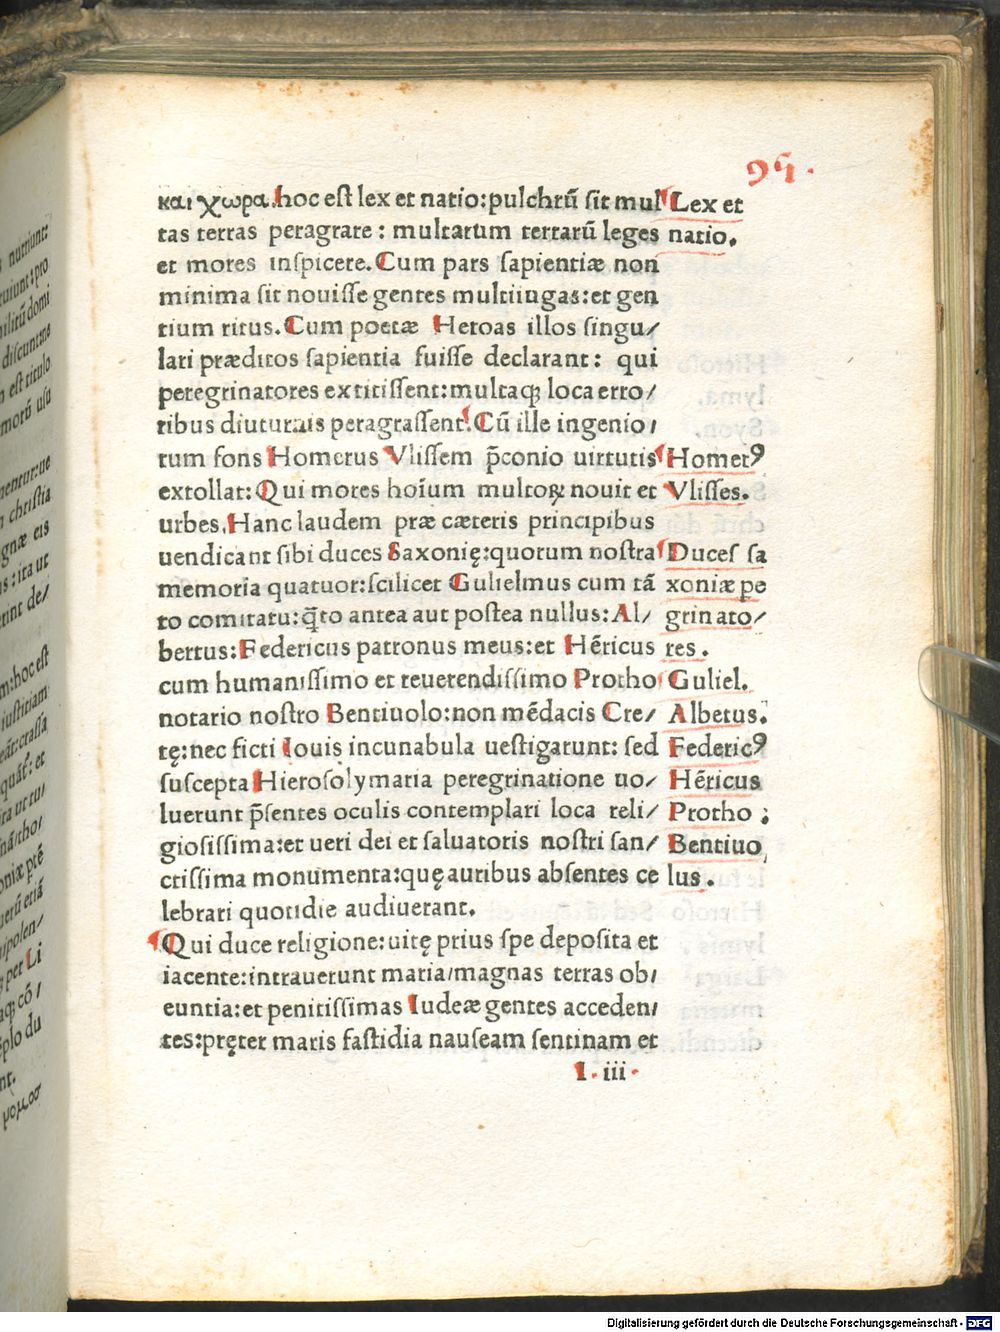 95.
και χωρα. hoc est lex et natio: pulchrū sit mul
tas terras peragrare : multarum terrarū leges
et mores inspicere. Cum pars sapientiæ non
minima sit nouisse gentes multiiugas: et gen
tium ritus. Cum poetæ Heroas illos singu/
lari præditos sapientia fuisse declarant : qui
peregrinatores extitissent: multaqꝫ loca erro/
ribus diuturnis peragrassent. Cū ille ingenio/
rum fons Homerus Vlissem p̄conio uirtutis
extollat: Qui mores hoīum multoꝝ nouit et
urbes. Hanc laudem præ cæteris principibus
uendicant sibi duces Saxonię: quorum nostra
memoria quatuor: scilicet Gulielmus cum tā
to comitatu: q̄to antea aut postea nullus: Al/
bertus: Federicus patronus meus: et Hēricus
cum humanissimo et reuerendissimo Protho
notario nostro Bentiuolo: non mēdacis Cre/
tę: nec ficti Iouis incunabula uestigarunt: sed
suscepta Hierosolymaria peregrinatione uo/
luerunt p̄sentes oculis contemplari loca reli/
giosissima: et ueri dei et saluatoris nostri san/
ctissima monumenta: quę auribus absentes ce
lebrari quotidie audiuerant.
Qui duce religione: uitę prius spe deposita et
iacente: intrauerunt maria/ magnas terras ob/
euntia: et penitissimas Iudeæ gentes acceden/
tes: pręter maris fastidia nauseam sentinam et
I . iii .
Lex et
natio.
Homerꝰ
Vlisses.
Duces sa
xoniæ pe
grinato/
res .
Guliel.
Albetus.
Federicꝰ
Hēricus
Protho ;
Bentiuo
lus .
nutriunt:
ruiunt: pro
domi
est titulo
christia
gnæ eis
: ita ut
m: hoc est
iustitiam
crassa
: et
tho/
per Li
cō/
plo du
nt.
Digitalisierung gefördert durch die Deutsche Forschungsgemeinschaft - DFG